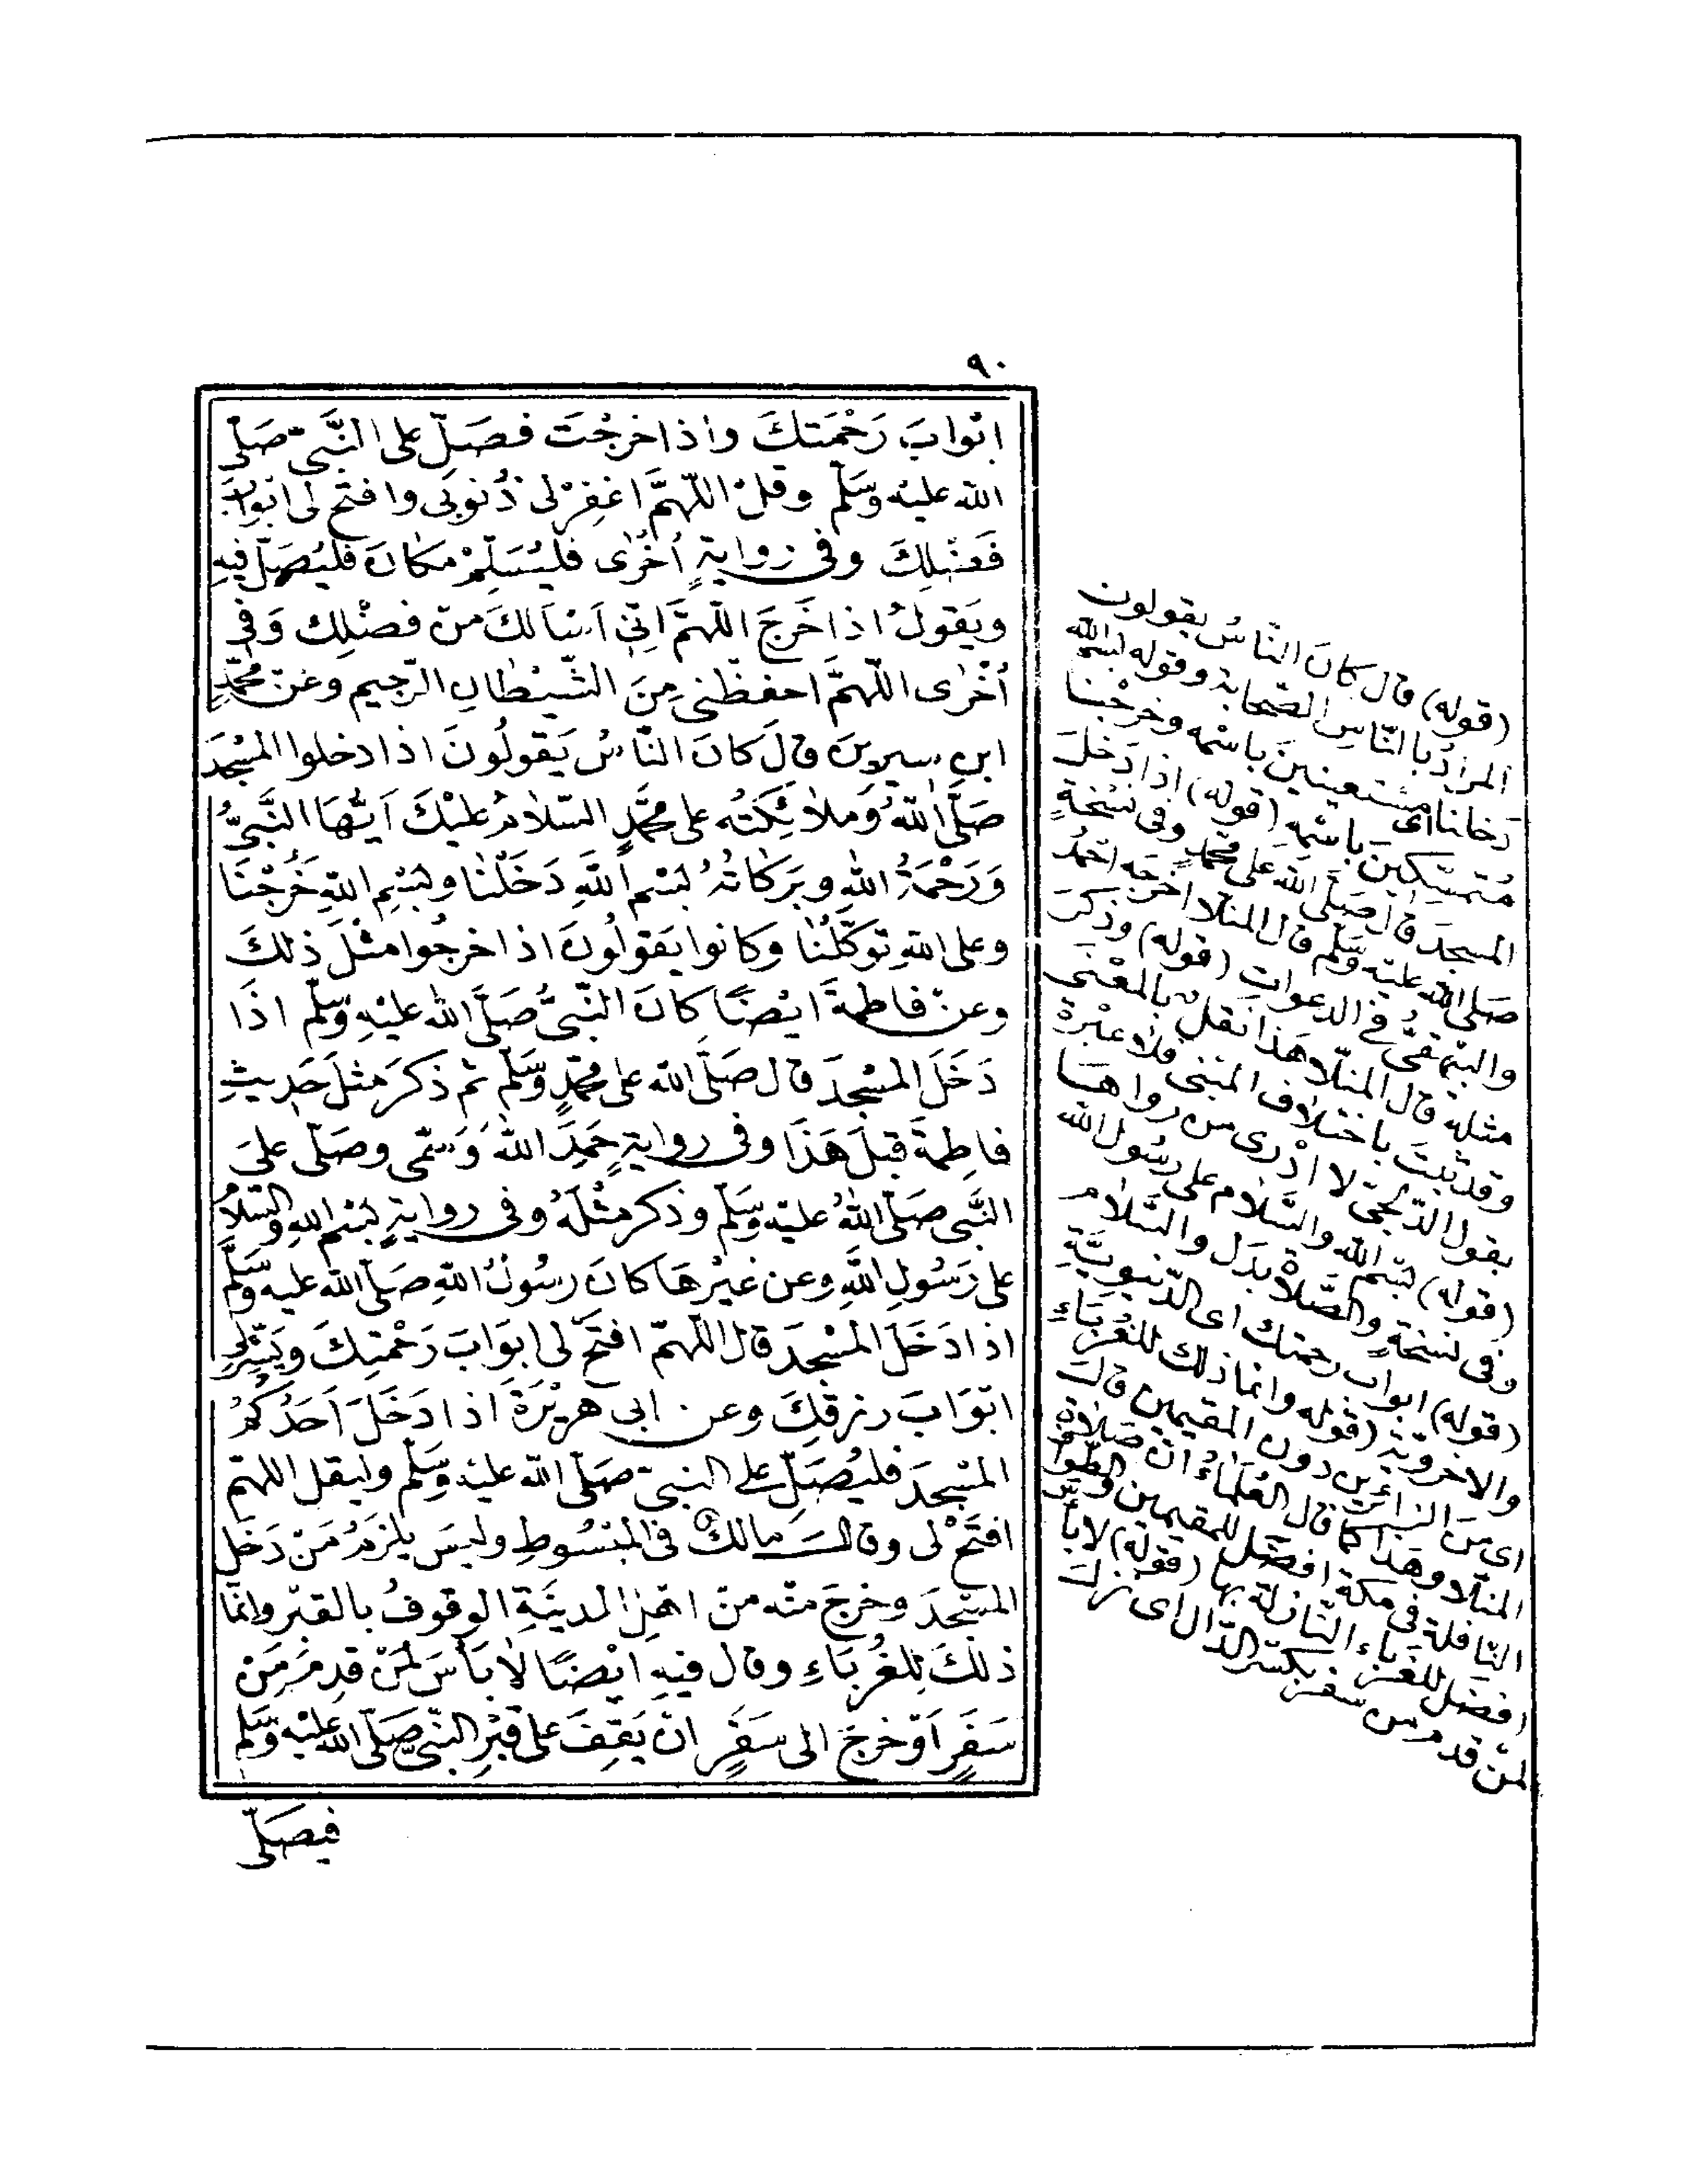 ٩٠
ابْوابَ رَحْمَتكَ واذاخرجْتَ فصَلِّ على النَّبىّ صَلّى
الله عليْه وَسَلَّم وقلْ اللّهمَّ اغفِرْلى ذُنوبى وافتحْ لى ابْوابَ
فَضْلِكَ وفى روايةٍ أُخْرٰى فليُسَلِّمْ مكانَ فليُصَلِّ فيهِ
ويَقولُ اذا خَرَجَ اللّهمَّ انّى اَسْاَلكَ منْ فضْلِك وَفى
اُخْرٰى اللّهمَّ احفظْنى مِنَ الشّيْطانِ الرّجيم وعَنْ محمّدِ
ابن سيرينَ قالَ كانَ النّاسُ يَقولُونَ اذا دخلوا المسْجدَ
صَلَّى اللّهُ وَملائِكَتُه على محمَّدٍ السّلامُ عليْكَ اَيُّهَا النَّبىُّ
وَرَحْمَةُ اللهِ وبَرَكاتُهُ بسْم اللّهِ دَخَلْنا وبسْمِ اللهِ خَرَجْنَا
وعلى اللهِ توَكَّلْنا وكانوا يَقولُونَ اذا خرجُوا مثْلَ ذلكَ
وعنْ فاطمةَ ايْضًا كانَ النّبىُّ صَلَّى الله عليْهِ وَسَلَّم اذَا
دَخَلَ المسْجدَ قال صَلَّى الله على محمّدٍ وَسَلَّم ثم ذكرَ مثلَ حَديثِ
فاطِمةَ قبلَ هَذَا وفى روايةٍ حَمِدَ اللهَ وَسَمّى وصَلّى علىَ
النَّبى صَلّى اللهُ عليه وَسَلّم وذكر مثْلَهُ وفى روايةٍ بسْم اللهِ والسّلامُ
على رَسُولِ اللهِ وعن غيْرهَا كانَ رسُولُ اللهِ صَلّى الله عليه وَسَلَّم
اذا دَخَلَ المسْجدَ قال اللّهمّ افتحْ لى ابوَابَ رَحْمتِكَ ويَسِّرْ لى
ابْوَابَ رزقِكَ وعن ابى هريْرَةَ اذا دَخَلَ اَحَدُكُمُ
المسْجدَ فليُصَلِّ على النبىّ صَلّى الله عليْه وسَلّم وليقل اللهمّ
افتَحْ لى وقالَ مالكٌ فى المبْسُوطِ وليسَ يلزمُ مَنْ دَخَلَ
المسْجدَ وخرجَ منْه منْ اهْلِ المدينَةِ الوقوفُ بالقبْرِ وانّمَا
ذلكَ للغُرَبَاءِ وقال فيهِ ايْضًا لا بَأْسَ لمنْ قدِمَ مِنْ
سَفَرٍ اَوْ خرجَ الى سَفَرٍ انْ يَقِفَ على قبْرِ النّبىّ صَلّى الله عليْه وسَلّم
فيصَلّى
(قوله) قال كانَ النّاسُ يقولون
المرادُ بالنّاسِ الصّحابة وقوله بسْم الله
دَخلنا اى مسْتعينينَ باسْمه وخرجْنا
مُتمسّكينَ باسْمه (قوله) اذا دَخلَ
المسجدَ قال صَلَّى اللهُ على محمّدٍ وفى نسْخةٍ
صَلّى الله عليْه وسَلّم قال المنلا اخرجَه احمدُ
والبيْهقىُّ فى الدعواتِ (قوله) وذكرَ
مثله قال المنلا هَذا نقل بالمعْنى
وقد ثبتَ باختلاف المبْنى فلا عبْرةَ
بقول الدّلجىّ لا ادْرى من رواهَا
(قوله) بسْم الله والسَّلام على رسُول الله
وفى نسْخةٍ والصَّلاةُ بدَل والسَّلام
(قوله) ابواب رحمتك اى الدّنيويّةِ
والاخرويّةِ (قوله) وانما ذلك للغُرَبَاءِ
اى منَ الزائرين دون المقيمين قالَ
المنلا وهَذا كما قال العُلماءُ انّ صَلاةَ
النّافلة فى مكّة افضَل للمقيمين والطّوافُ
افضَل للغرباء النّازلة بها (قوله) لا بأسَ
لمنْ قدم من سفر بكسْر الدّال اى نزلَ